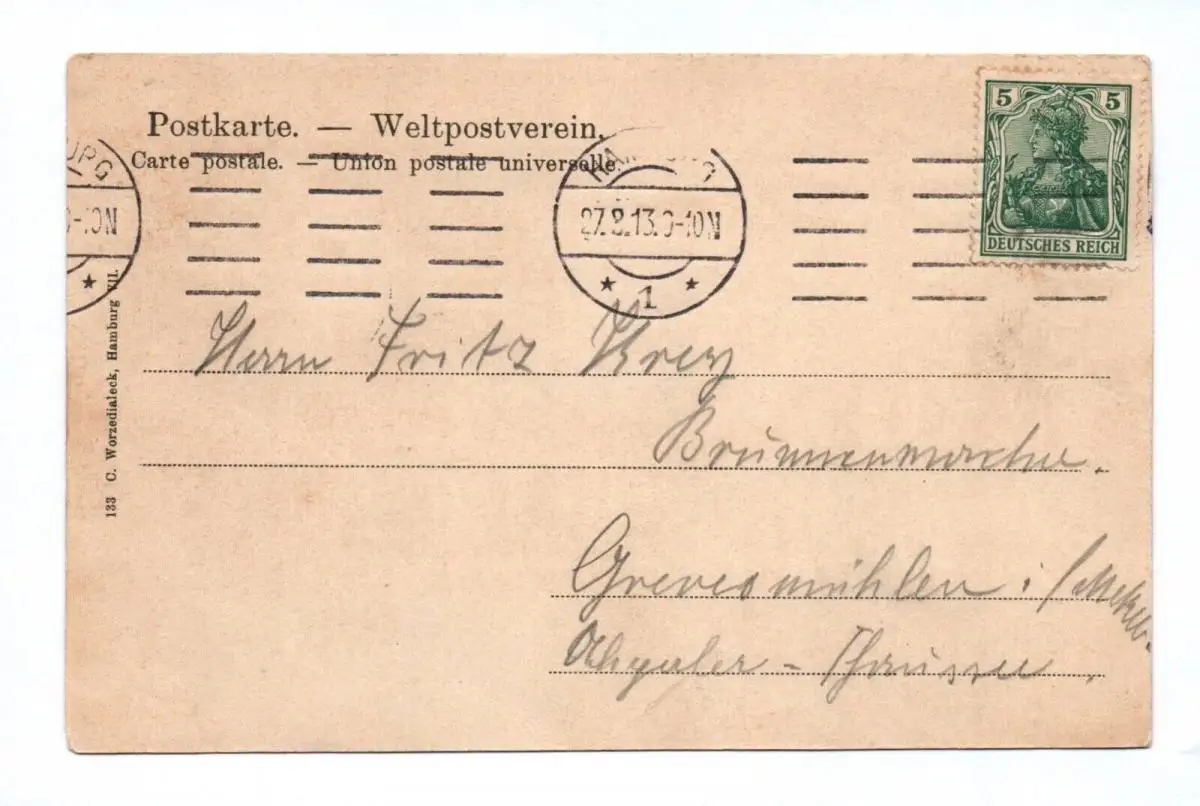 Postkarte. — Weltpostverein.
Carte postale. — Union postale universelle.
5 5
DEUTSCHES REICH
URG
-10N
HAMBURG
27.8.13. 9-10N
* 1 *
133 C. Worzedialeck, Hamburg VII.
Herrn Fritz Krey
Brunnenmacher.
Grevesmühlen i/Meckl.
Chaussee.